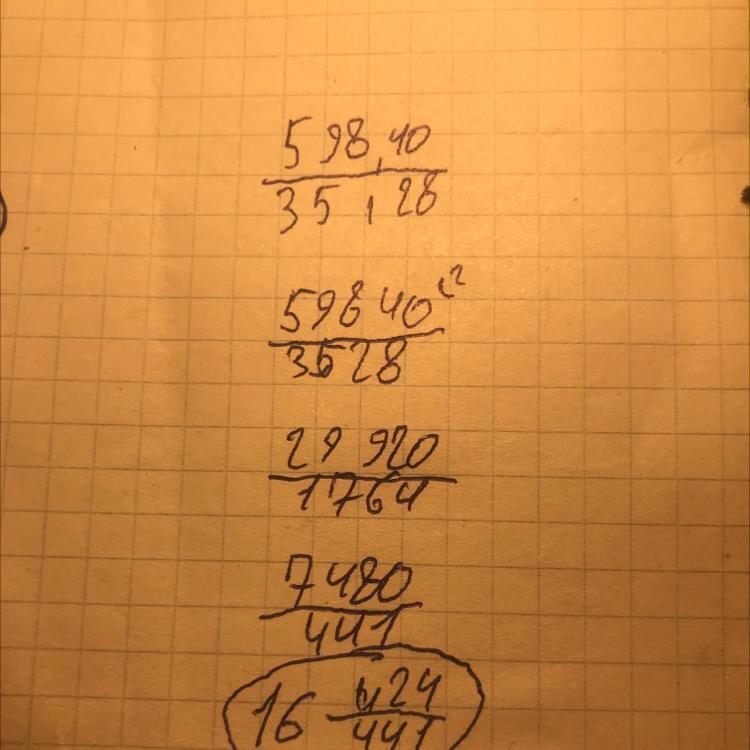 598,40
35,28
59840
3528
29920
1764
7480
441
16 424
441